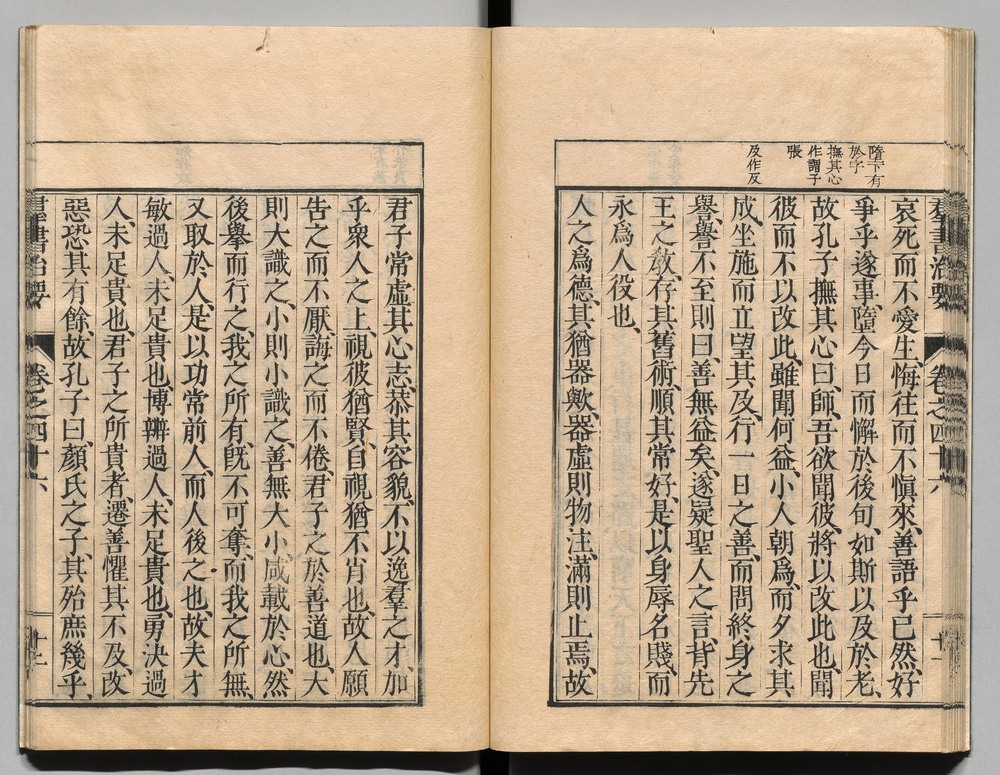 隋下有
於字
撫其心
作謂子
張
及作反
羣書治要 卷之四十六 十一
哀死而不愛生、悔往而不愼來、善語乎已然、好
爭乎遂事、墮今日而懈於後旬、如斯以及於老、
故孔子撫其心曰、師、吾欲聞彼、將以改此也、聞
彼而不以改此、雖聞何益、小人朝爲、而夕求其
成、坐施而立望其及、行一日之善、而問終身之
譽、譽不至則曰、善無益矣、遂疑聖人之言、背先
王之敎、存其舊術、順其常好、是以身辱名賤、而
永爲人役也、
人之爲德、其猶器歟、器虛則物注、滿則止焉、故
君子常虛其心志、恭其容貌、不以逸羣之才、加
乎衆人之上、視彼猶賢、自視猶不肖也、故人願
告之而不厭、誨之而不倦、君子之於善道也、大
則大識之、小則小識之、善無大小、咸載於心、然
後擧而行之、我之所有、旣不可奪、而我之所無、
又取於人、是以功常前人、而人後之也、故夫才
敏過人、未足貴也、博辨過人、未足貴也、勇決過
人、未足貴也、君子之所貴者、遷善懼其不及、改
惡恐其有餘、故孔子曰、顏氏之子、其殆庶幾乎、
羣書治要 卷之四十六 十二